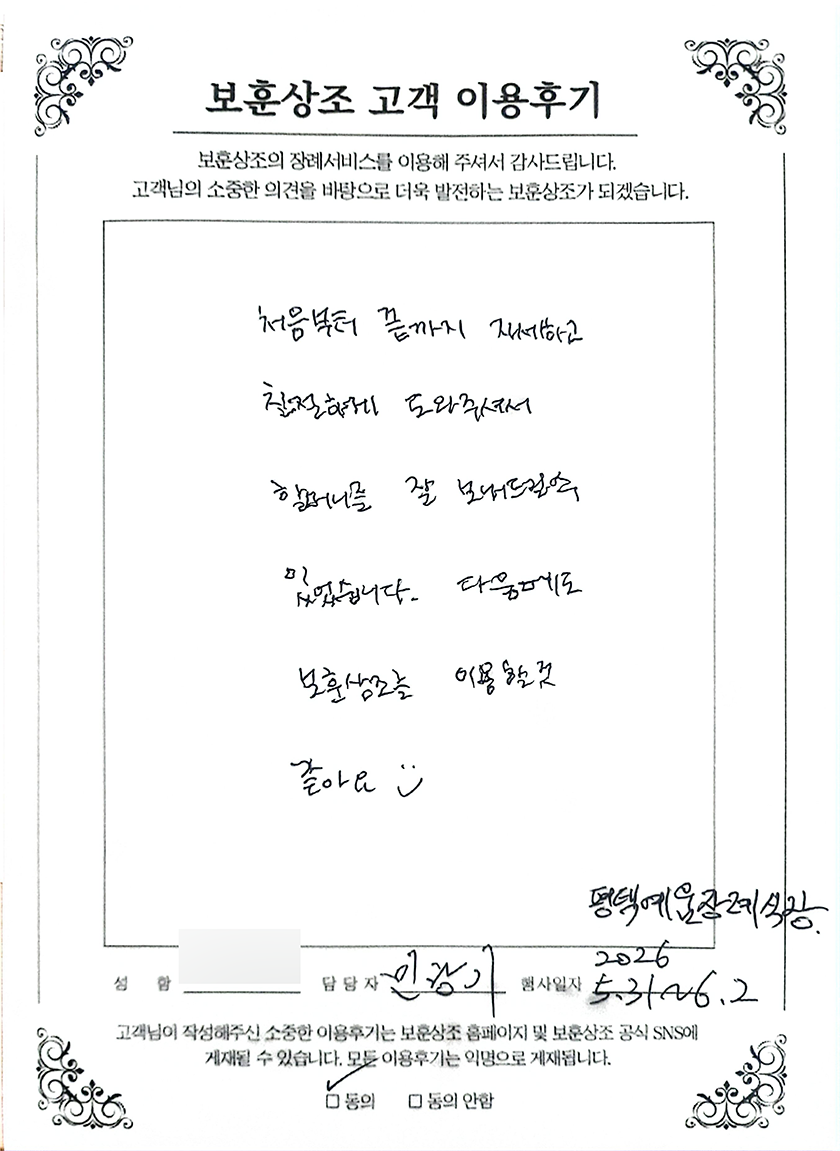 보훈상조 고객 이용후기
보훈상조의 장례서비스를 이용해 주셔서 감사드립니다.
고객님의 소중한 의견을 바탕으로 더욱 발전하는 보훈상조가 되겠습니다.
처음부터 끝까지 자세하고
친절하게 도와주셔서
할머니를 잘 보내드릴수
있었습니다. 다음에도
보훈상조를 이용할것
같아요
평택예울장례식장.
성 함 담당자 행사일자 2026
5.31~6.2
고객님이 작성해주신 소중한 이용후기는 보훈상조 홈페이지 및 보훈상조 공식 SNS에
게재될 수 있습니다. 모든 이용후기는 익명으로 게재됩니다.
동의 동의 안함